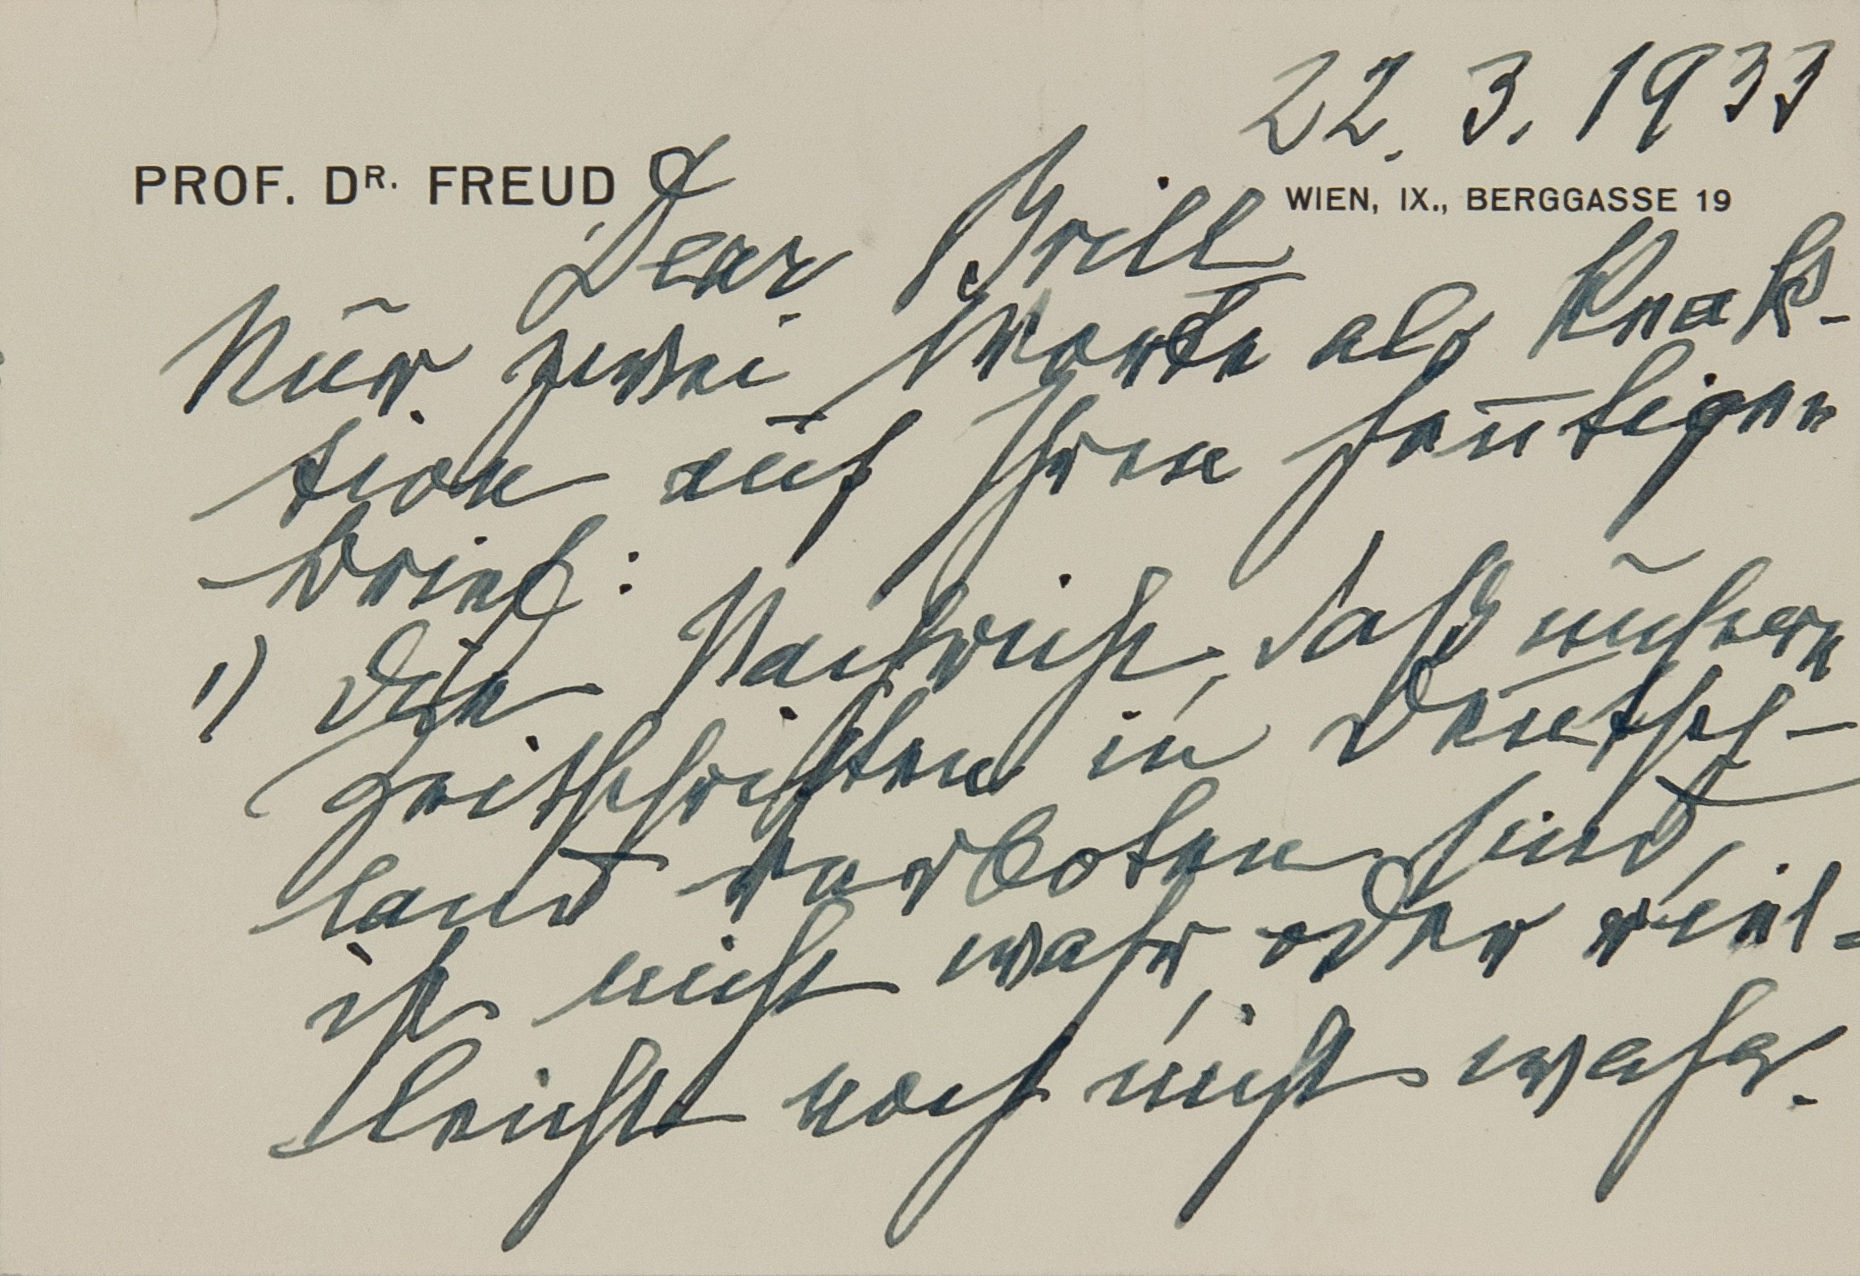 22. 3. 1933
PROF. DR. FREUD
WIEN, IX., BERGGASSE 19
Dear Brill
Nur zwei Worte als Reak-
tion auf Ihren heutigen
Brief:
1) Die Nachricht, daß unsere
Zeitschriften in Deutsch-
land verboten sind,
ist nicht wahr, oder viel-
leicht noch nicht wahr.